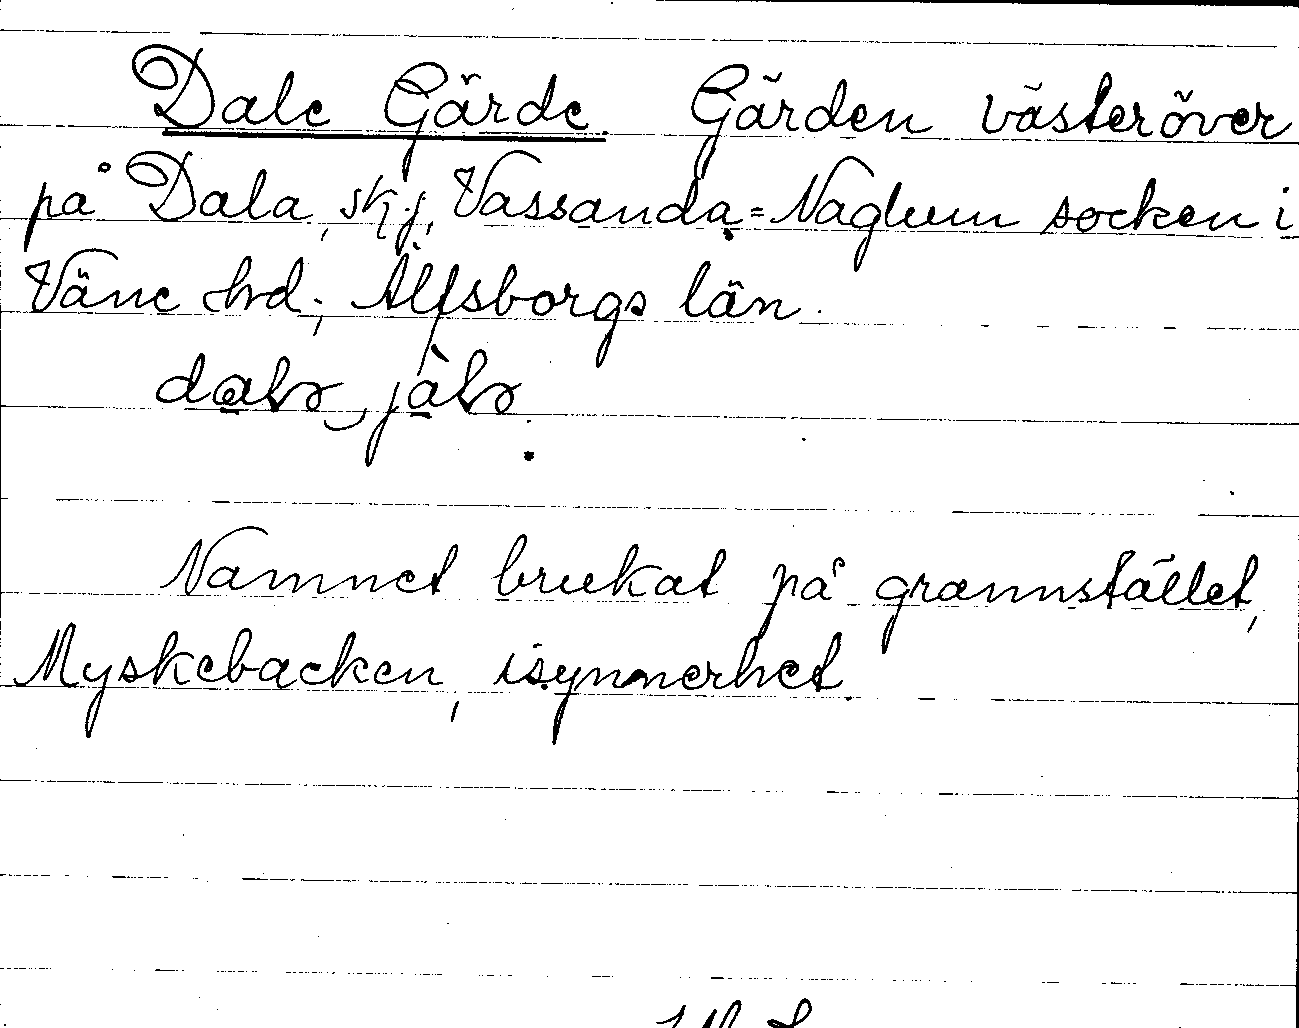 Dale Gärde Gärden västeröver
på Dala, skj, Vassända=Naglum socken i
Väne hd; Älfsborgs län.
Namnet brukat på grannstället,
Myskebacken, isynnerhet.